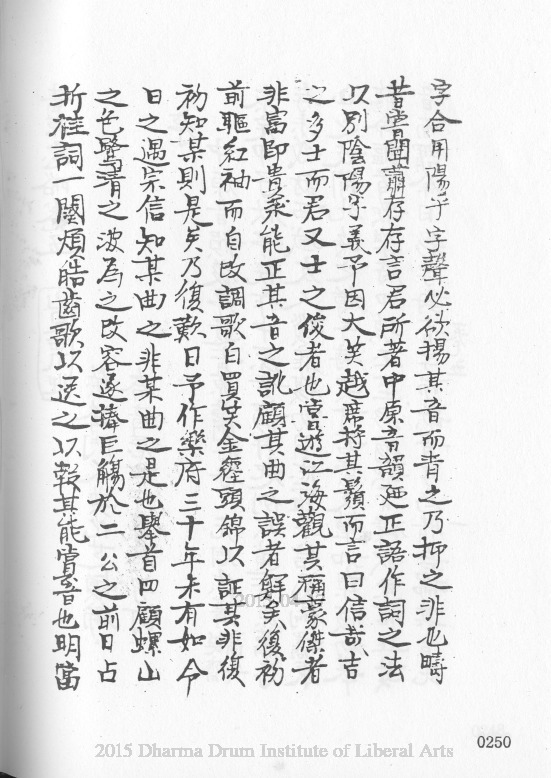 字合用陽乎字聲必欲揚其音而青之乃抑之非也疇
昔嘗聞蕭存存言君所著中原音韻廼正語作詞之法
以別陰陽字義予因大笑越席捋其鬚而言曰信哉吉
之多士而君又士之俊者也嘗遊江海觀其稱豪傑者
非富即貴求能正其音之訛顧其曲之誤者鮮矣復初
前驅紅袖而自改調歌白買笑金纏頭錦以証其非復
初知某則是矣乃復歎曰予作樂府三十年未有如今
日之遇宗信知某曲之非某曲之是也舉首四顧螺山
之色鷺渚之波為之改容遂捧巨觴於二公之前口占
折桂詞一闋煩皓齒歌以送之以報其能賞音也明當
0250
2015 Dharma Drum Institute of Liberal Arts